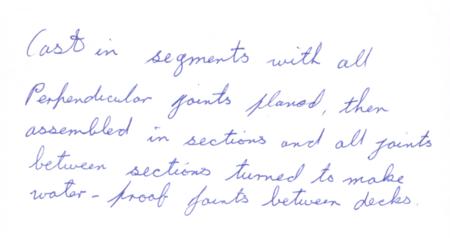 Cast in segments with all
Perpendicular joints planed, then
assembled in sections and all joints
between sections turned to make
water-proof joints between decks.